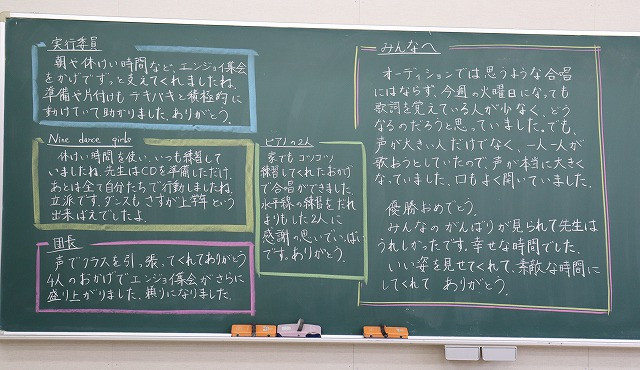 実行委員
朝や休けい時間など、エンジョイ集会
をかげでずっと支えてくれましたね。
準備や片付けもテキパキと積極的に
動けていて助かりました。ありがとう。
Nine dance girls
休けい時間を使い、いつも練習して
いましたね。先生はCDを準備しただけ。
あとは全て自分たちで行動しましたね。
立派です。ダンスもさすが上学年という
出来ばえでしたよ。
団長
声でクラスを引っ張ってくれてありがとう
4人のおかげでエンジョイ集会がさらに
盛り上がりました。頼りになりました。
ピアノの2人
家でもコツコツ
練習してくれたおかげ
で合唱ができました。
水平線の練習をだれ
よりもした2人に
感謝の思いでいっぱい
です。ありがとう。
みんなへ
オーディションでは思うような合唱
にはならず、今週の火曜日になっても
歌詞を覚えている人が少なく、どう
なるのだろうと思っていました。でも、
声が大きい人だけでなく、一人一人が
歌おうとしていたので、声が本当に大きく
なっていました。口もよく開いていました。
優勝おめでとう。
みんなのがんばりが見られて先生は
うれしかったです。幸せな時間でした。
いい姿を見せてくれて、素敵な時間に
してくれて ありがとう。